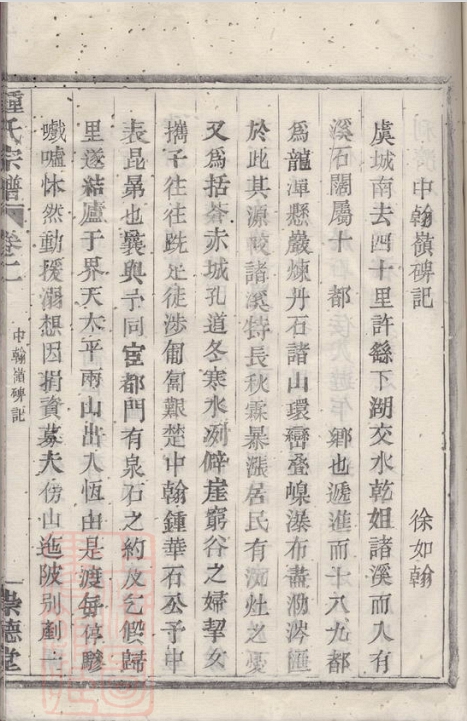 中翰嶺碑記
徐如翰
虞城南去四十里許繇下湖交水乾姐諸溪而入有
溪石闊屬十都鄉也遞進而十八九都
為龍潭懸巖煉丹石諸山環巒叠嶂瀑布盡泐澪匯
於此其源較諸溪特長秋霖暴漲居民有沉灶之憂
又為括蒼赤城孔道冬寒水冽僻崖窮谷之婦挈女
擕子往往跣足徒涉匍匐艱楚中翰鍾華石公予中
表昆弟也曩與予同宦都門有泉石之約及乞假歸
里遂結廬于界天太平兩山出入恆由是渡每停驂
嘅嚧怵然動援溺想因捐資募夫傍山迤陂别劃
鍾氏宗譜
卷二
中翰嶺碑記
一
崇德堂